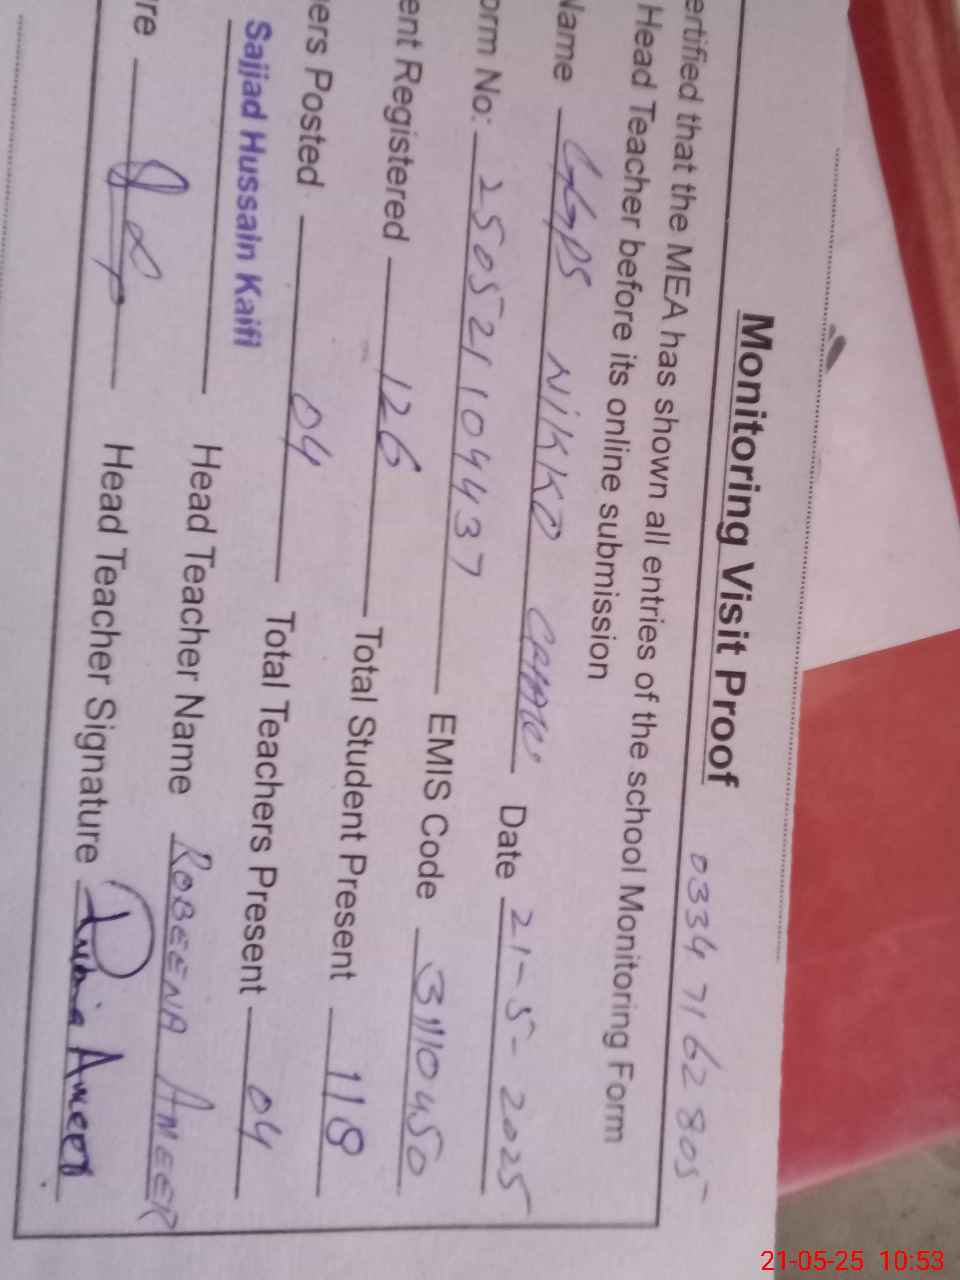 Monitoring Visit Proof 0334 7162805
ertified that the MEA has shown all entries of the school Monitoring Form
Head Teacher before its online submission
Name GGPS NiKKO Date 21-5-2025
orm No: 250521104437 EMIS Code 31110450
ent Registered 126 Total Student Present 118
ers Posted 04 Total Teachers Present 04
Sajjad Hussain Kaifi Head Teacher Name ROBEENA AMEER
re Head Teacher Signature Ameer
21-05-25 10:53